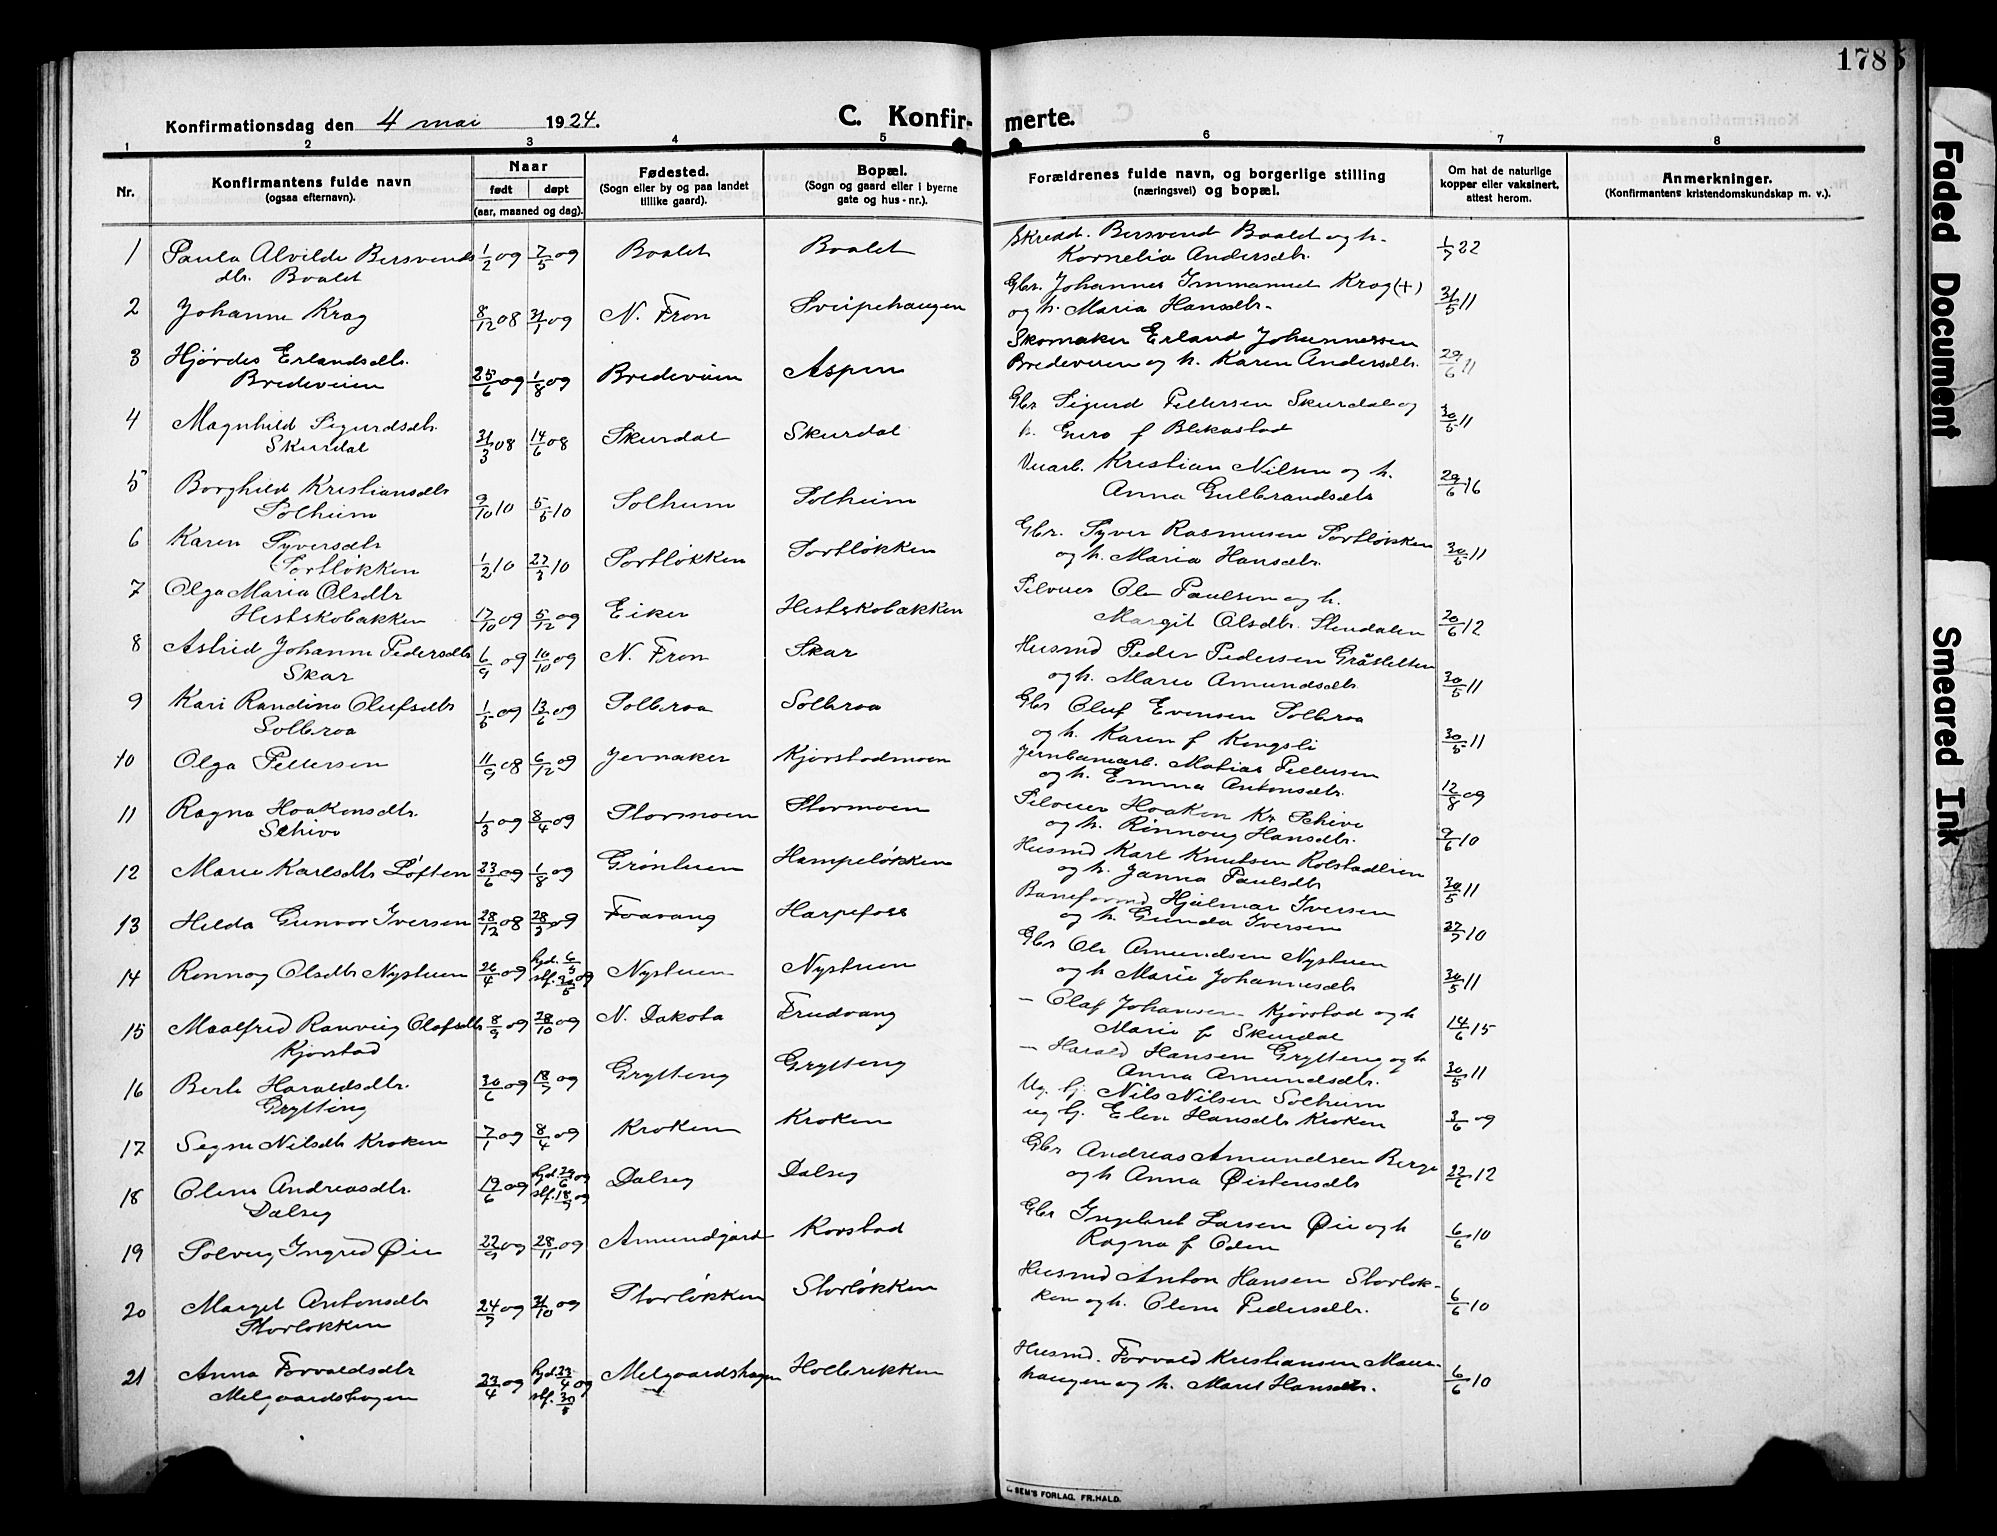 178
Konfirmationsdag den 4 mai 1924.
C. Konfirmerte.
1 2 3 4 5 6 7 8
Nr.
Konfirmantens fulde navn
(ogsaa efternavn).
Naar
født døpt
(aar, maaned og dag).
Fødested.
(Sogn eller by og paa landet
tillike gaard).
Bopæl.
(Sogn og gaard eller i byerne
gate og hus-nr.).
Forældrenes fulde navn, og borgerlige stilling
(næringsvei) og bopæl.
Om hat de naturlige
kopper eller vaksinert,
attest herom.
Anmerkninger.
(Konfirmantens kristendomskundskap m. v.).
1 Paula Alvilde Bersvends 1/2 09 7/5 09 Baalet Baalet Skredd. Bersvend Baalet og h. 1/7 22
dtr. Baalet Kornelia Andersdtr.
2 Johanne Krag 8/12 08 31/1 09 N. Fron Sveipehaugen Gbr. Johannes Immanuel Krag (+) 31/5 11
og h. Maria Hansdtr.
3 Hjørdis Erlandsdtr. Skomaker Erland Johannessen
Bredeveien 25/6 09 1/8 09 Bredeveien Aspen Bredeveien og h. Karen Andersdtr. 29/6 11
4 Magnhild Sigurdsdtr. Gbr Sigurd Pettersen Skurdal og
Skurdal 31/3 08 14/6 08 Skurdal Skurdal h. Guro f Blekastad 30/5 11
5 Borghild Kristiansdtr Kristian Nilsen og h.
Solheim 9/10 10 5/5 10 Solheim Solheim Anna Gulbrandsdtr 29/6 16
6 Karen Syversdtr Gbr. Syver Rasmussen Sortløkken
Sortløkken 1/2 10 27/3 10 Sortløkken Sortløkken og h. Maria Hansdtr. 30/5 11
7 Olga Maria Olsdtr Selveier Ole Paulsen og h.
Hestskobakken 17/10 09 5/12 09 Eiker Hestskobakken Margit Olsdtr. Slendalen 20/6 12
8 Astrid Johanne Pedersdtr 6/9 09 10/10 09 N. Fron Skar Husmd Peder Pedersen Gråsletten
Skar og h. Marie Amundsdtr. 30/5 11
9 Kari Randine Olufsdtr 1/5 09 13/6 09 Solbraa Solbraa Gbr Oluf Evensen Solbraa
Solbraa og h. Karen f Kongsli 30/5 11
10 Olga Pettersen 11/9 08 6/12 09 Jevnaker Kjørstadmoen Jernbanearb. Matias Pettersen
og h. Emma Antonsdtr. 12/8 09
11 Ragna Haakensdtr. 1/3 09 8/4 09 Stormoen Stormoen Selveier Haaken Kr Schive
Schive og h. Rønnaug Hansdtr. 9/6 10
12 Marie Karlsdtr Løften 23/6 09 1/8 09 Grøntuen Hampeløkken Husmd Karl Knutsen Kolstadlien
og h. Janna Paulsdtr 30/5 11
13 Helda Gunvor Iversen 28/12 08 28/3 09 Faavang Harpefoss Baneformd Hjalmar Iversen
og h. Gunda Iversen 27/7 10
14 Rønnog Olsdtr Nystuen 26/4 09 hjd. 6/5 stf. 30/5 09 Nystuen Nystuen Gbr Ole Amundsen Nystuen
og h Marie Johannesdtr 30/5 11
15 Maalfrid Ranveig Olafsdtr 8/9 09 28/10 09 N. Dakota Fredvang — Olaf Johansen Kjørstad og h
Kjørstad Marie f Skurdal 14/6 15
16 Berte Haraldsdtr. 30/6 09 18/7 09 Grytting Grytting — Harald Hansen Grytting og h
Grytting Anna Amundsdtr. 30/5 11
17 Segni Nilsdtr Kroken 7/1 09 8/4 09 Kroken Kroken Ug. Gj. Nils Nilsen Solheim
ug Gj. Elen Hansdtr Kroken 3/6 09
18 Oline Andreasdtr. 19/6 09 hjd. 29/6 09 stf. 18/7 09 Dalseg Dalseg Gbr Andreas Amundsen Berge
Dalseg og h Anna Østensdtr 22/6 12
19 Solveig Ingrid Øie 22/9 09 28/11 09 Amundgjord Korstad Gbr Ingebret Larsen Øie og h
Ragna f Oden 6/6 10
20 Margit Antonsdtr 24/7 09 31/10 09 Storløkken Storløkken Husmd Anton Hansen Storløk-
Storløkken ken og h. Oline Pedersdtr. 6/6 10
21 Anna Torvaldsdtr 23/4 09 hjd. 23/4 09 stf. 30/5 Melgaardshagen Holbrekken Husmd. Torvald Kristiansen Maur-
Melgaardshagen haugen og h. Maret Hansdtr. 6/6 10
SEM'S FORLAG. FR.HALD.
Faded Document
Smeared Ink